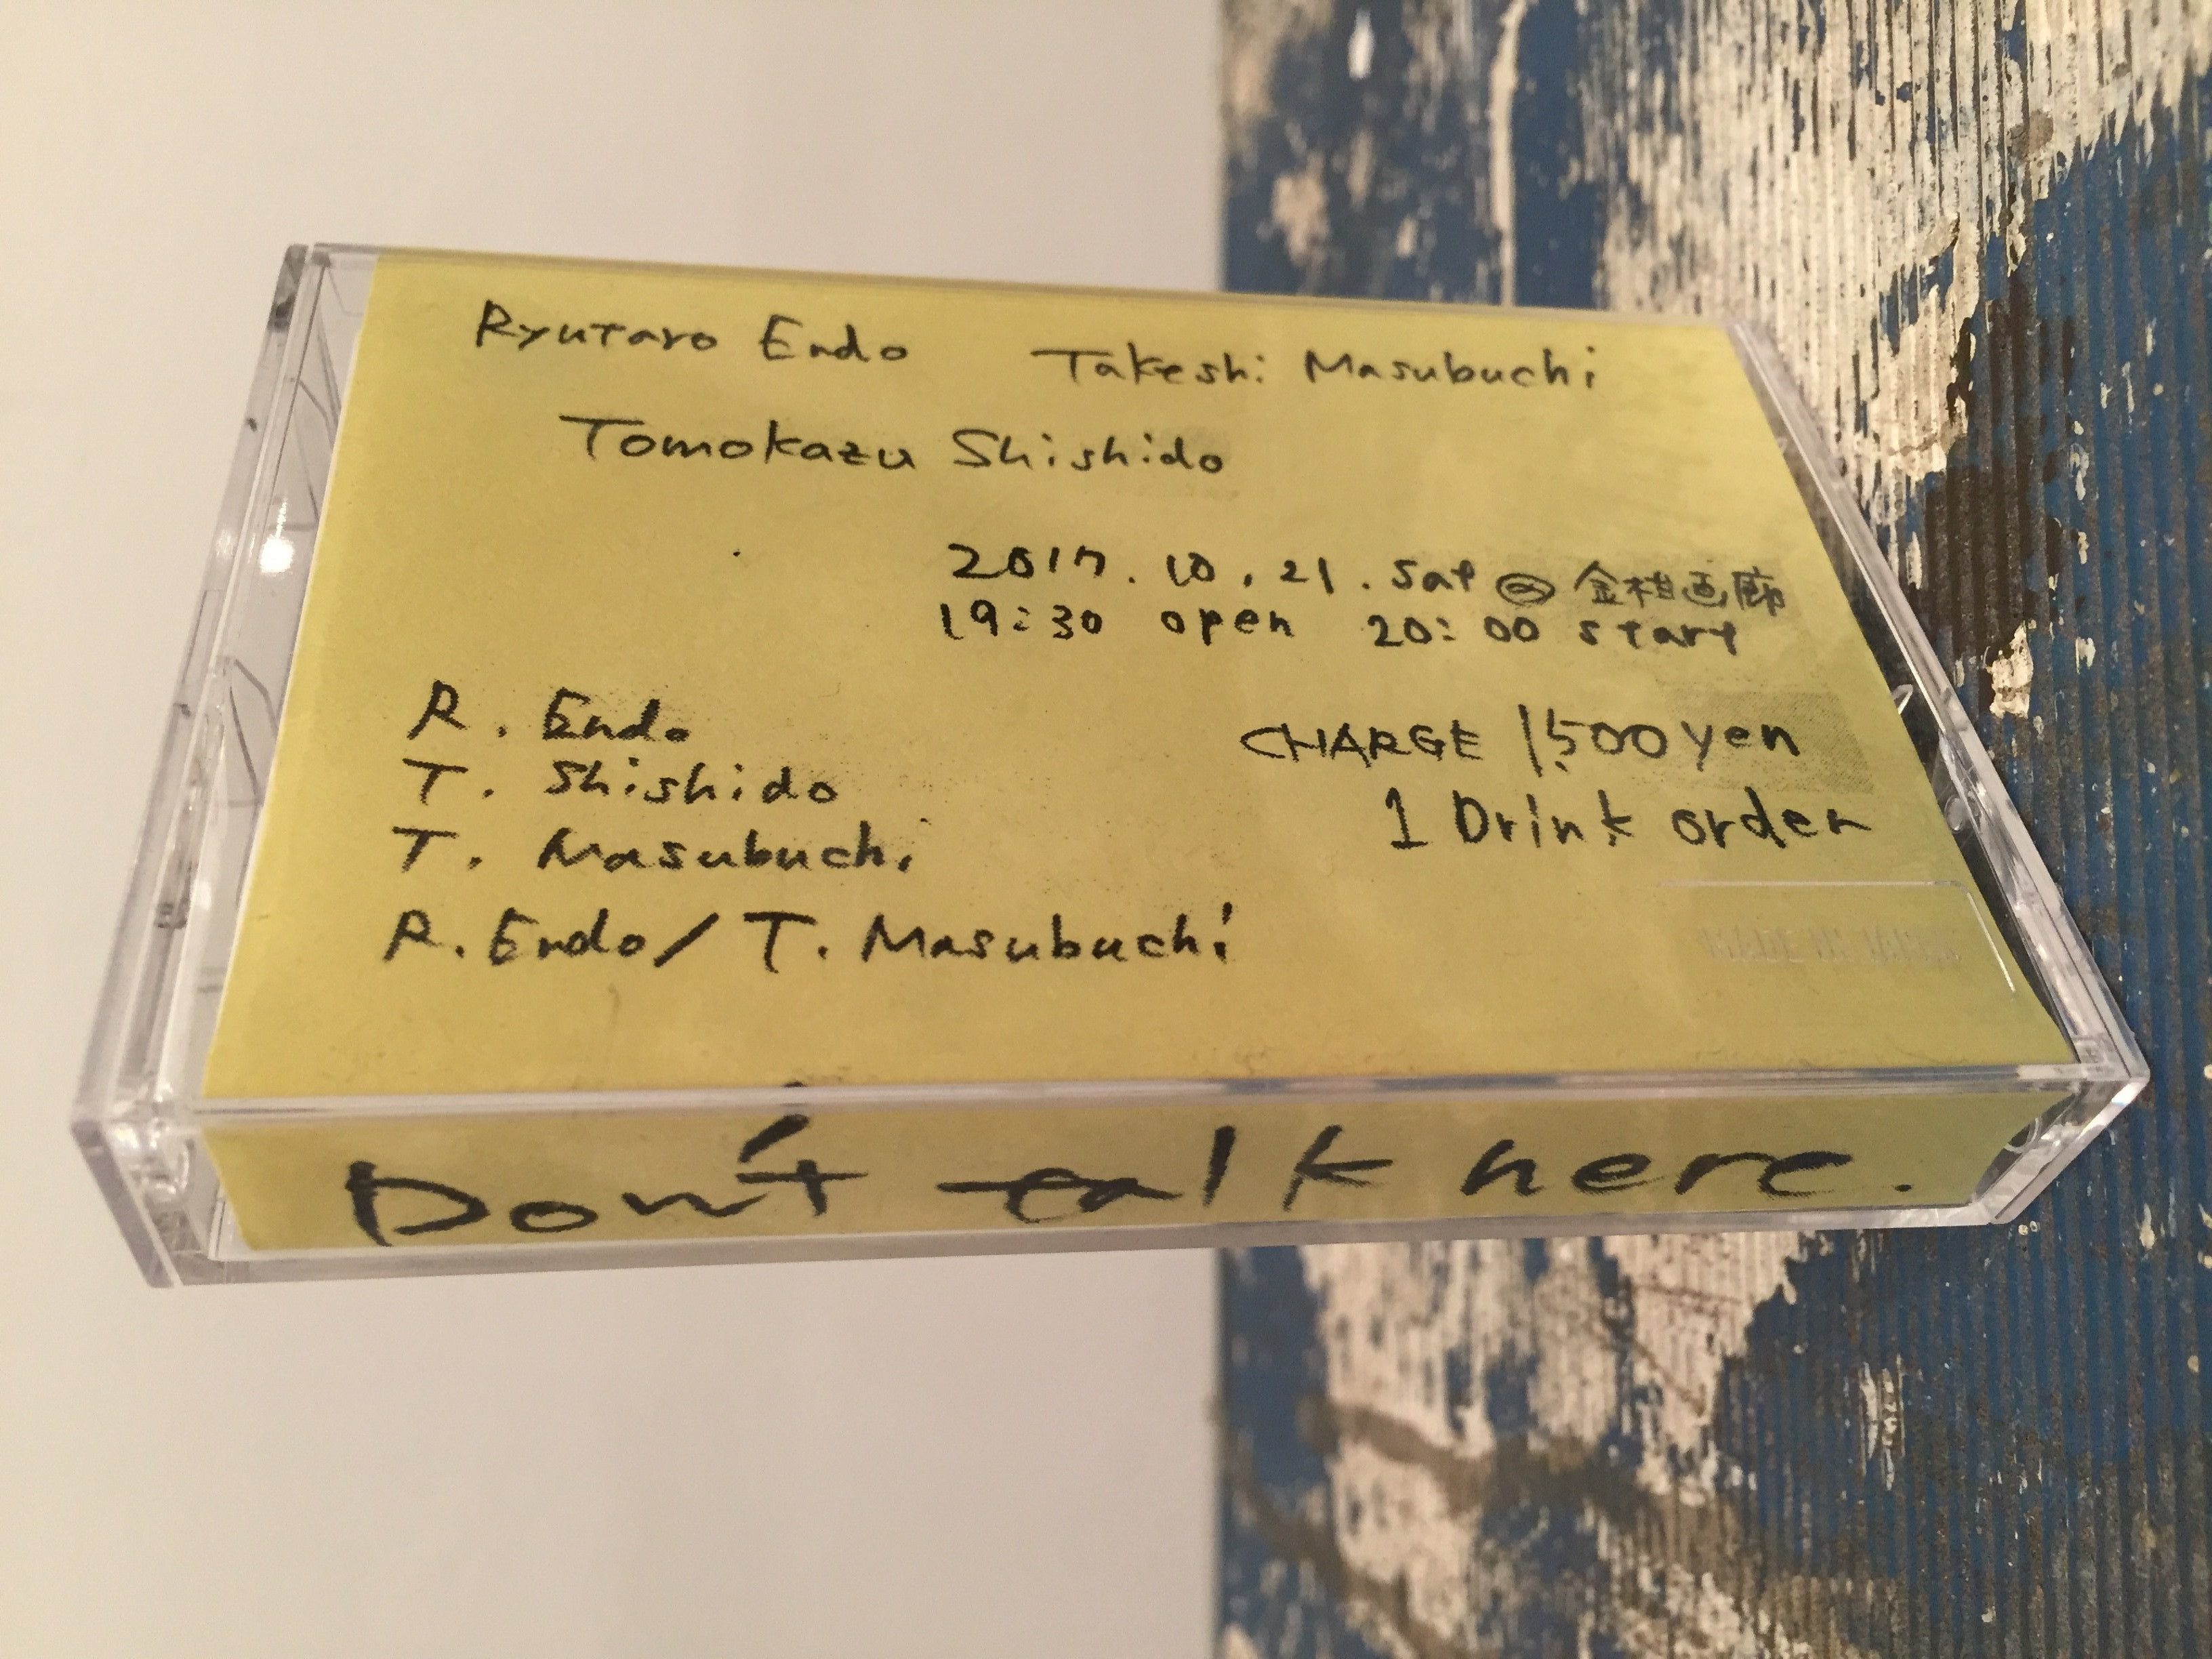 Ryutaro Endo Takeshi Masubuchi
Tomokazu Shishido
2017.10.21.Sat @ 金柑画廊
19:30 open 20:00 start
R. Endo
T. Shishido
T. Masubuchi
R. Endo / T. Masubuchi
CHARGE 1,500 yen
1 Drink order
Don't talk here.